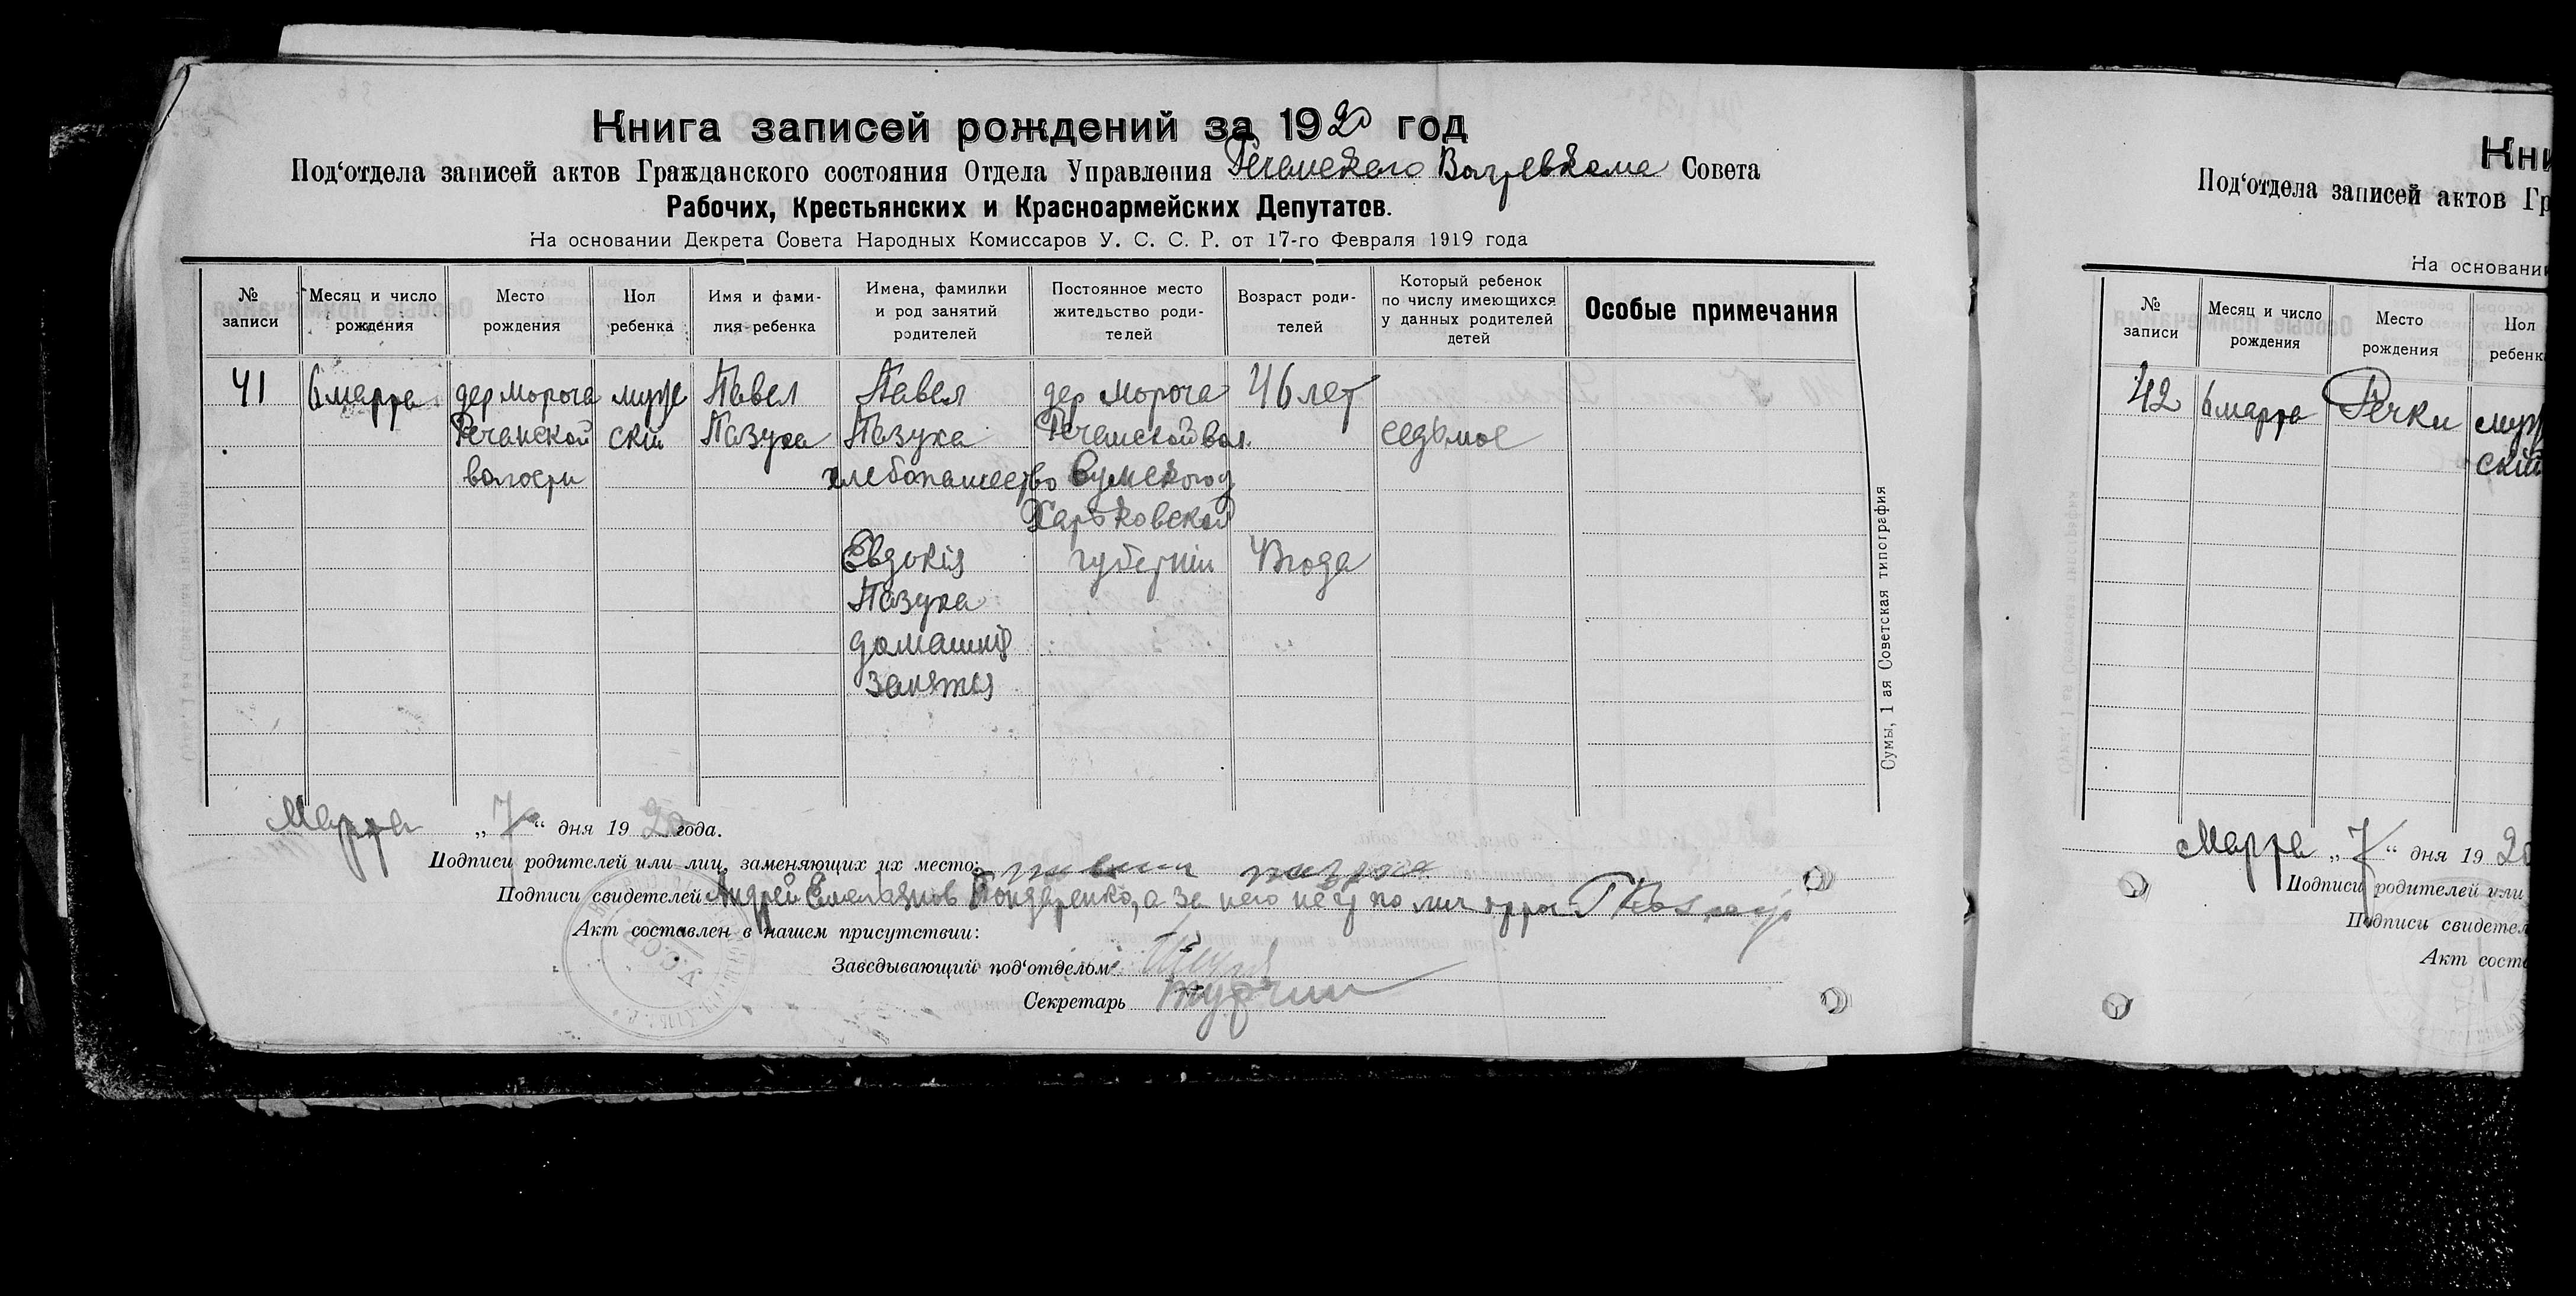 Книга записей рождений за 1920 год
Под‘отдела записей актов Гражданского состояния Отдела Управления Речанского Волревкома Совета
Рабочих, Крестьянских и Красноармейских Депутатов.
На основании Декрета Совета Народных Комиссаров У. С. С. Р. от 17-го Февраля 1919 года
№ записи
Месяц и число рождения
Место рождения
Пол ребенка
Имя и фамилия ребенка
Имена, фамилии и род занятий родителей
Постоянное место жительство родителей
Возраст родителей
Который ребенок по числу имеющихся у данных родителей детей
Особые примечания
41
6 марта
дер Мороча
Речанской
волости
муже
скій
Павел
Пазуха
Павел
Пазуха
хлебопашество
Евдокія
Пазуха
домашнія
занятія
дер Мороча
Речанской вол.
Сумского у
Харьковской
губерніи
46 лет
43 года
седьмое
Сумы, 1 ая Советская типография
Марта „7“ дня 1920 года.
Подписи родителей или лиц, заменяющих их место: павел пазуха
Подписи свидетелей Андрей Емельянов Бондаренко, а за него
Акт составлен в нашем присутствии:
Заведывающий под‘отделом
Секретарь
У.С.С.Р.
Кни
Под‘отдела записей актов Гр
На основании
№ записи
Месяц и число рождения
Место рождения
Пол ребенк
42
6 марта
Речки
муж
скій
Марта „7“ дня 1920
Подписи родителей или
Подписи свидетел
Акт соста